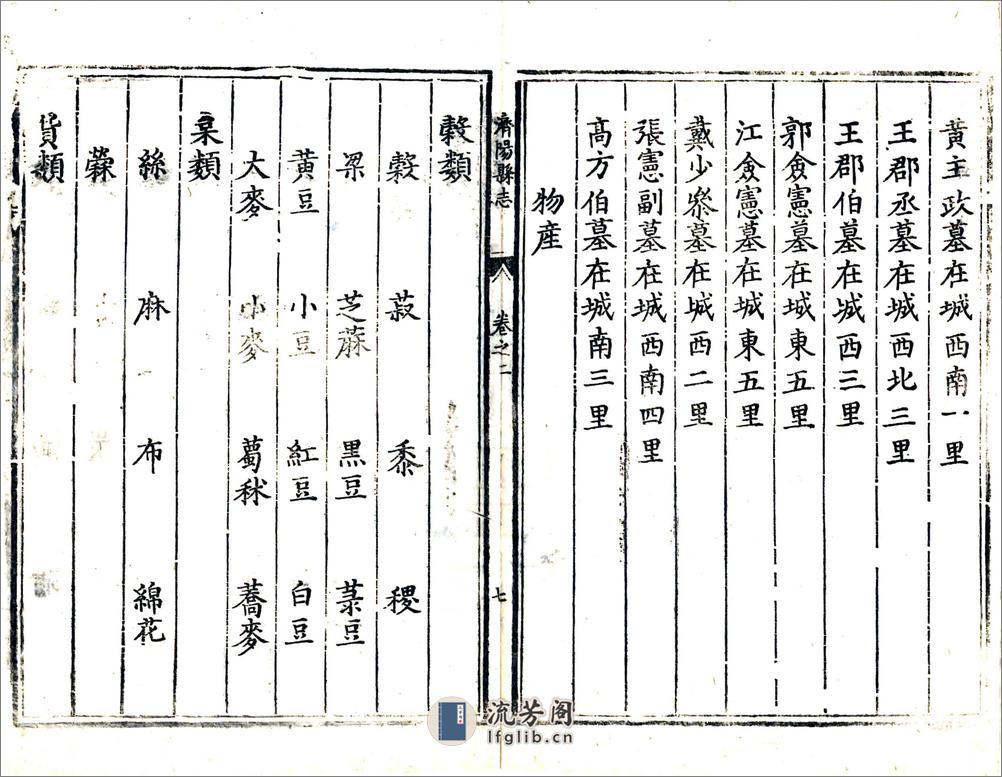 黄主政墓在城西南一里
王郡丞墓在城西北三里
王郡伯墓在城西三里
郭僉憲墓在城東五里
江僉憲墓在城東五里
戴少叅墓在城西二里
張憲副墓在城西南四里
高方伯墓在城南三里
物産
濟陽縣志 卷之二 七
穀類
穀 菽 黍 稷
梁 芝蔴 黒豆 菉豆
黄豆 小豆 紅豆 白豆
大麥 小麥 蔔秫 蕎麥
枲類
絲 麻 布 綿花
貨類
流芳阁
lfglib.cn